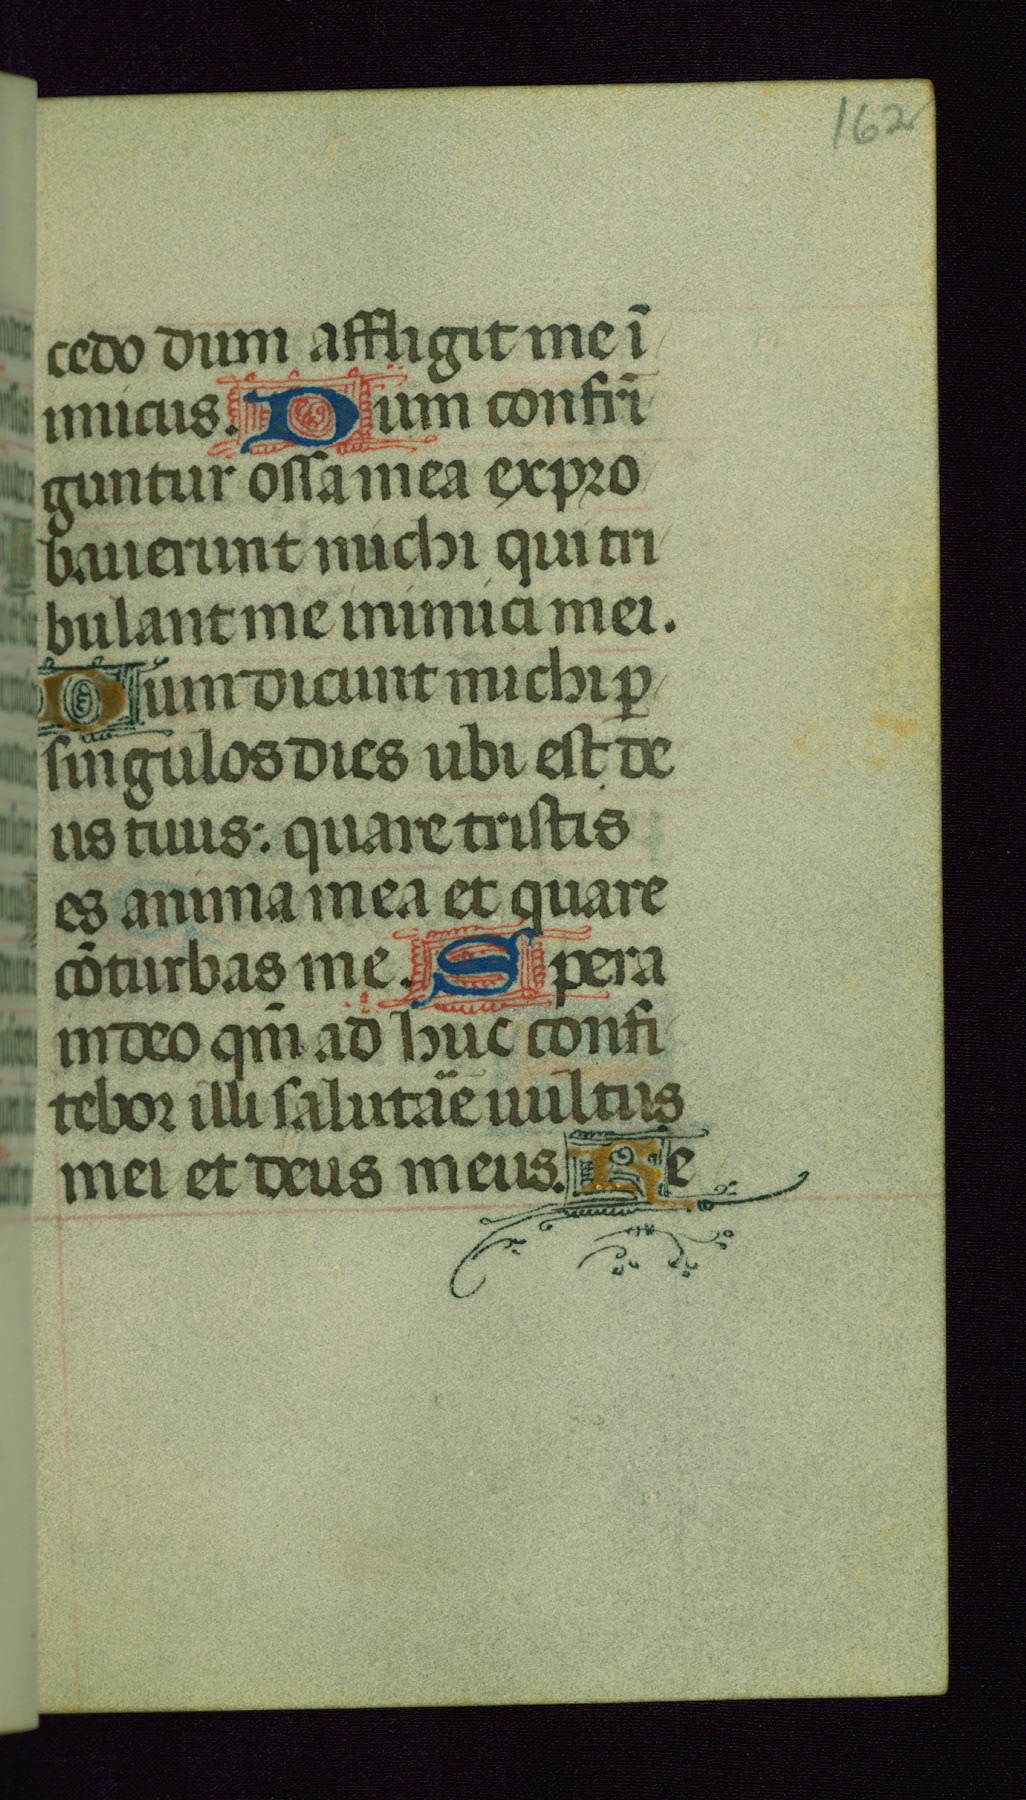 162
cedo dum affligit me ī
imicus. Dum confri
guntur ossa mea expro
bauerunt michi qui tri
bulant me inimici mei.
Dum dicunt michi ꝑ
singulos dies ubi est de
us tuus: quare tristis
es anima mea et quare
cōturbas me. Spera
in deo qm̄ ad huc confi
tebor illi salutāe uultus
mei et deus meus. Re